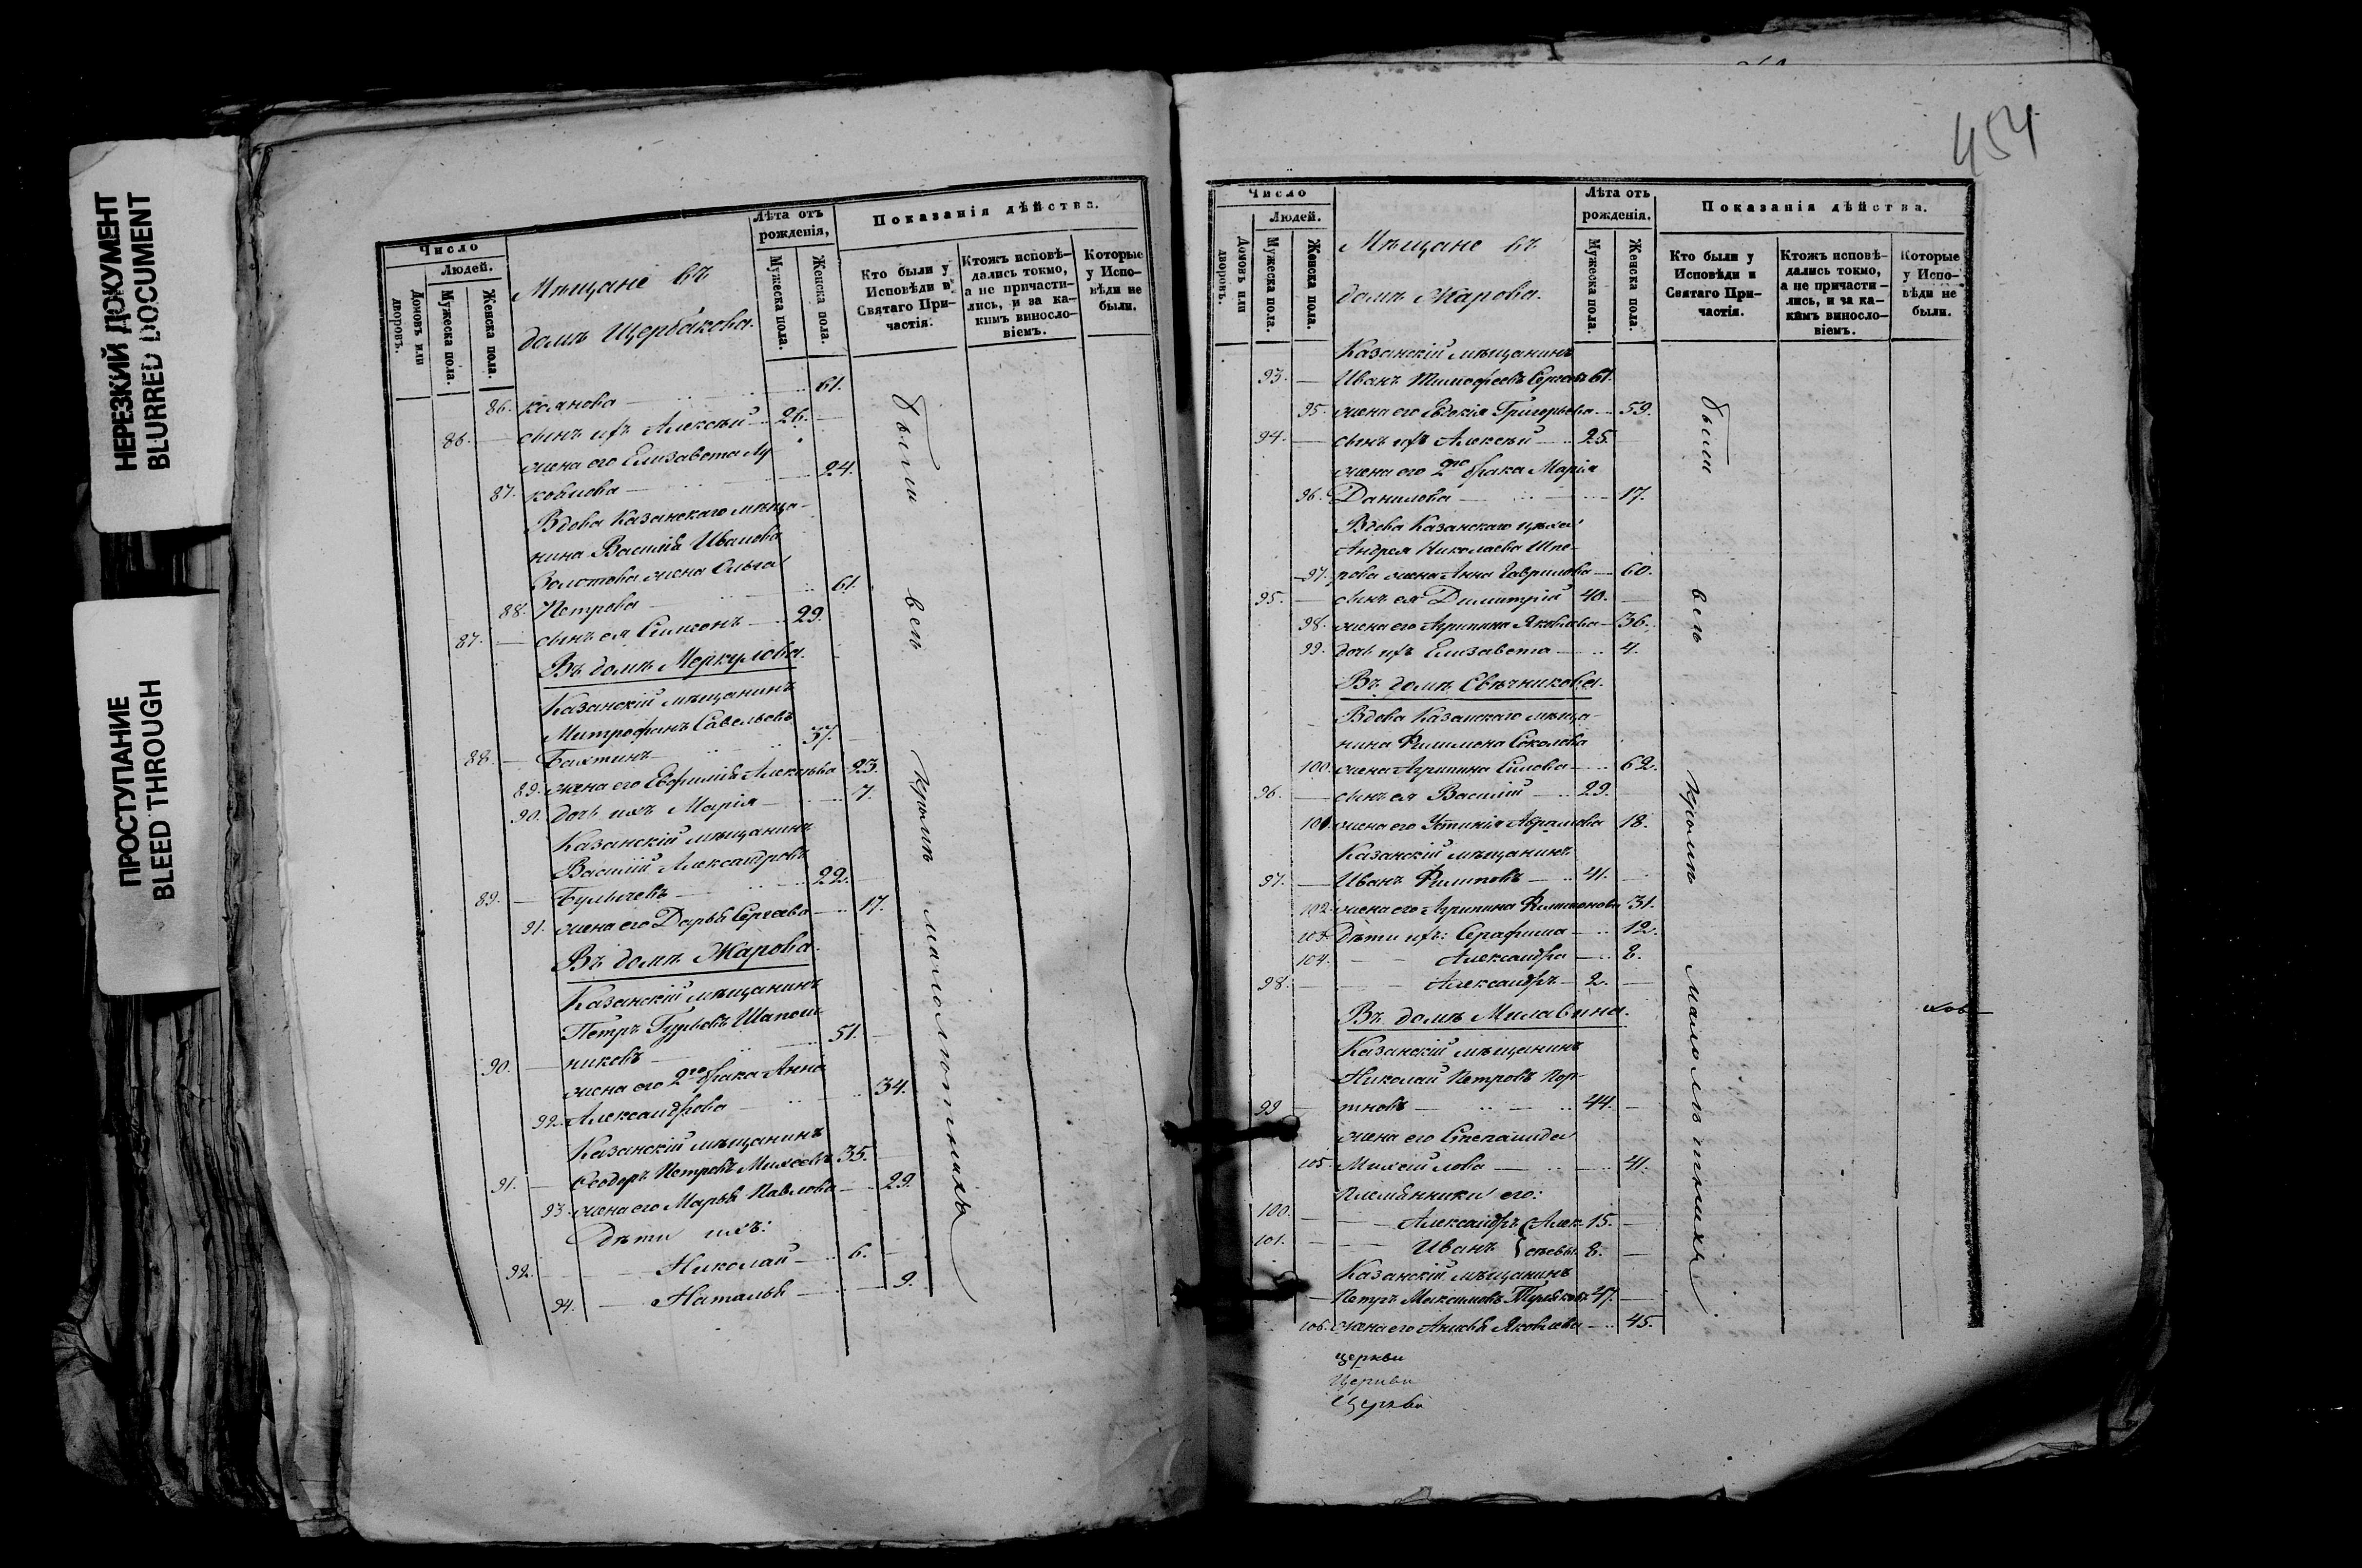 НЕРЕЗКИЙ ДОКУМЕНТ
BLURRED DOCUMENT
ПРОСТУПАНИЕ
BLEED THROUGH
Число
Людей.
Домовъ или дворовъ.
Мужеска пола.
Женска пола.
Мѣщане въ
домѣ Щербакова.
Лѣта отъ рожденія,
Мужеска пола.
Женска пола.
Показанія дѣйства.
Кто были у Исповѣди и Святаго Причастія.
Ктожъ исповѣдались токмо, а не причастились, и за какимъ винословіемъ.
Которые у Исповѣди не были.
86. 61.
86. сынъ ихъ Алексѣй 26.
жена его Елизавета Я
87. ковлева 24.
Вдова Казанскаго мѣща-
нина Василія Иванова
Золотова жена Ольга
88. Петрова 61.
87. сынъ ея Симеонъ 29.
Въ домѣ Меркулова.
Казанскій мѣщанинъ
Митрофанъ Савельевъ
88. Бахтинъ 37.
89. жена его Евфимія Алексѣева 23.
90. дочь ихъ Марія 7.
Казанскій мѣщанинъ
Василій Александровъ
89. Булычевъ 22.
91. жена его Дарья Сергѣева 17.
Въ домѣ Жарова.
Казанскій мѣщанинъ
Петръ Гурьевъ Шапош
90. никовъ 51.
жена его 2го брака Анна
92. Александрова 34.
Казанскій мѣщанинъ
91. Ѳеодоръ Петровъ Михеевъ 35.
93. жена его Марья Павлова 29.
Дѣти ихъ:
92. Николай 6.
94. Наталья 9.
были
всѣ
кромѣ
малолѣтныхъ
454
Число
Людей.
Домовъ или дворовъ.
Мужеска пола.
Женска пола.
Мѣщане въ
домѣ Жарова.
Лѣта отъ рожденія.
Мужеска пола.
Женска пола.
Показанія дѣйства.
Кто были у Исповѣди и Святаго Причастія.
Ктожъ исповѣдались токмо, а не причастились, и за какимъ винословіемъ.
Которые у Исповѣди не были.
Казанскій мѣщанинъ
93. Иванъ Тимофеевъ Сергѣевъ 61.
95. жена его Евдокія Григорьева 59.
94. сынъ ихъ Алексѣй 25.
жена его 2го брака Марія
96. Данилова 17.
Вдова Казанскаго цѣхов
Андрея Николаева Шпе-
97. рова жена Анна Гаврилова 60.
95. сынъ ея Димитрій 40.
98. жена его Агрипина Яковлева 36.
99. дочь ихъ Елизавета 4.
Въ домѣ Свѣчникова.
Вдова Казанскаго мѣща-
нина Филимона Соколова
100. жена Агрипина Силова 62.
96. сынъ ея Василій 29.
101. жена его Устинія Абрамова 18.
Казанскій мѣщанинъ
97. Иванъ Филиповъ 41.
102. жена его Агрипина Филимонова 31.
103. Дѣти ихъ: Серафима 12.
104. Александра 8.
98. Александръ 2.
Въ домѣ Милавина.
Казанскій мѣщанинъ
Николай Петровъ Пор-
99 тновъ 44.
жена его Степанида
105. Михайлова 41.
Племянники его:
100. Александръ Алек 15.
101. Иванъ сѣевы 8.
Казанскій мѣщанинъ
Петръ Максимовъ 47.
106. жена его Анисья Яковлева 45.
были
всѣ
кромѣ
малолѣтныхъ
церкви
Церкви
Церкви